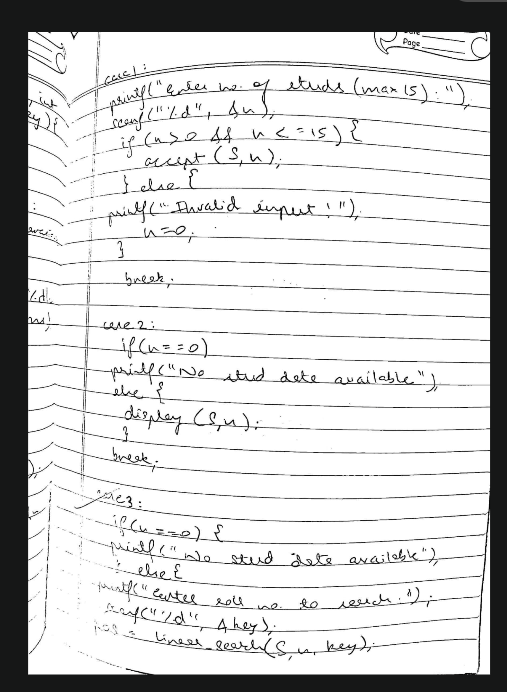 Page
case 1:
printf("Enter no. of studs (max 15) : ");
scanf("%d", &n);
if (n>0 && n <= 15) {
accept (S, n);
} else {
printf("Invalid input !");
n=0;
}
break;
case 2:
if(n==0)
printf("No stud data available");
else {
display (S,n);
}
break;
case 3:
if(n==0) {
printf("No stud data available");
} else {
printf("Enter roll no. to search:");
scanf("%d", &key);
pos = linear_search(S, n, key);
int
key) {
%d